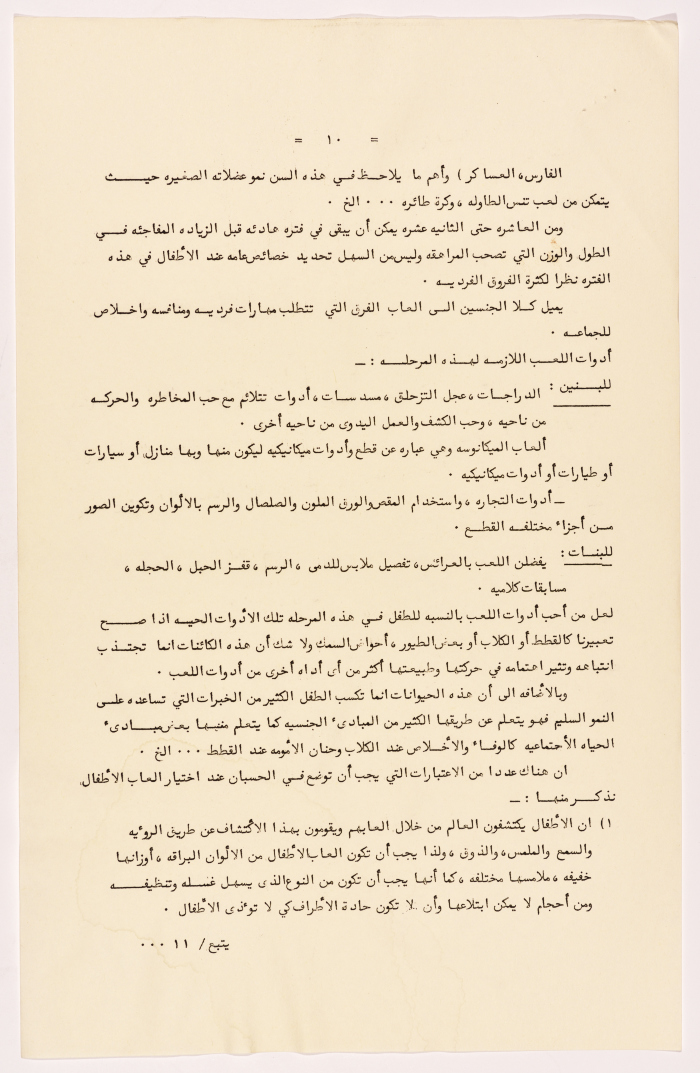 = ١٠ =
الفارس، العساكر) وأهم ما يلاحظ في هذه السن نمو عضلاته الصغيره حيث
يتمكن من لعب تنس الطاوله، وكرة طائره ٠٠٠ الخ ٠
ومن العاشره حتى الثانيه عشره يمكن أن يبقى في فتره هادئه قبل الزياده المفاجئه في
الطول والوزن التي تصحب المراهقه وليس من السهل تحديد خصائص عامه عند الأطفال في هذه
الفتره نظرا لكثرة الفروق الفرديه ٠
يميل كلا الجنسين الى العاب الفرق التي تتطلب مهارات فرديه ومنافسه واخلاص
للجماعه ٠
أدوات اللعب اللازمه لهذه المرحله : ــ
للبنين : الدراجات، عجل التزحلق، مسدسات، أدوات تتلائم مع حب المخاطره والحركه
من ناحيه، وحب الكشف والعمل اليدوى من ناحيه أخرى ٠
ألعاب الميكانوسه وهي عباره عن قطع وأدوات ميكانيكيه ليكون منها وبها منازل أو سيارات
أو طيارات أو أدوات ميكانيكيه ٠
ــ أدوات التجاره، واستخدام المقص والورق الملون والصلصال والرسم بالألوان وتكوين الصور
من أجزاء مختلفه القطع ٠
للبنات : يفضلن اللعب بالعرائس، تفصيل ملابس للدمى، الرسم، قفز الحبل، الحجله،
مسابقات كلاميه ٠
لعل من أحب أدوات اللعب بالنسبه للطفل في هذه المرحله تلك الأدوات الحيه اذا صح
تعبيرنا كالقطط أو الكلاب أو بعض الطيور، أحواض السمك ولا شك أن هذه الكائنات انما تجتذب
انتباهه وتثير اهتمامه في حركتها وطبيعتها أكثر من أى أداه أخرى من أدوات اللعب ٠
وبالأضافه الى أن هذه الحيوانات انما تكسب الطفل الكثير من الخبرات التي تساعده على
النمو السليم فهو يتعلم عن طريقها الكثير من المبادىء الجنسيه كما يتعلم منها بعض مبادىء
الحياه الأجتماعيه كالوفاء والأخلاص عند الكلاب وحنان الأمومه عند القطط ٠٠٠ الخ ٠
ان هناك عددا من الاعتبارات التي يجب أن توضع في الحسبان عند اختيار العاب الأطفال
نذكر منها : ــ
١) ان الأطفال يكتشفون العالم من خلال العابهم ويقومون بهذا الأكتشاف عن طريق الروءيه
والسمع والملمس، والذوق، ولذا يجب أن تكون العاب الأطفال من الألوان البراقه، أوزانها
خفيفه، ملامسها مختلفه، كما أنها يجب أن تكون من النوع الذى يسهل غسله وتنظيفه
ومن أحجام لا يمكن ابتلاعها وأن لا تكون حادة الأطراف كي لا توءذى الأطفال ٠
يتبع / ١١ ٠٠٠